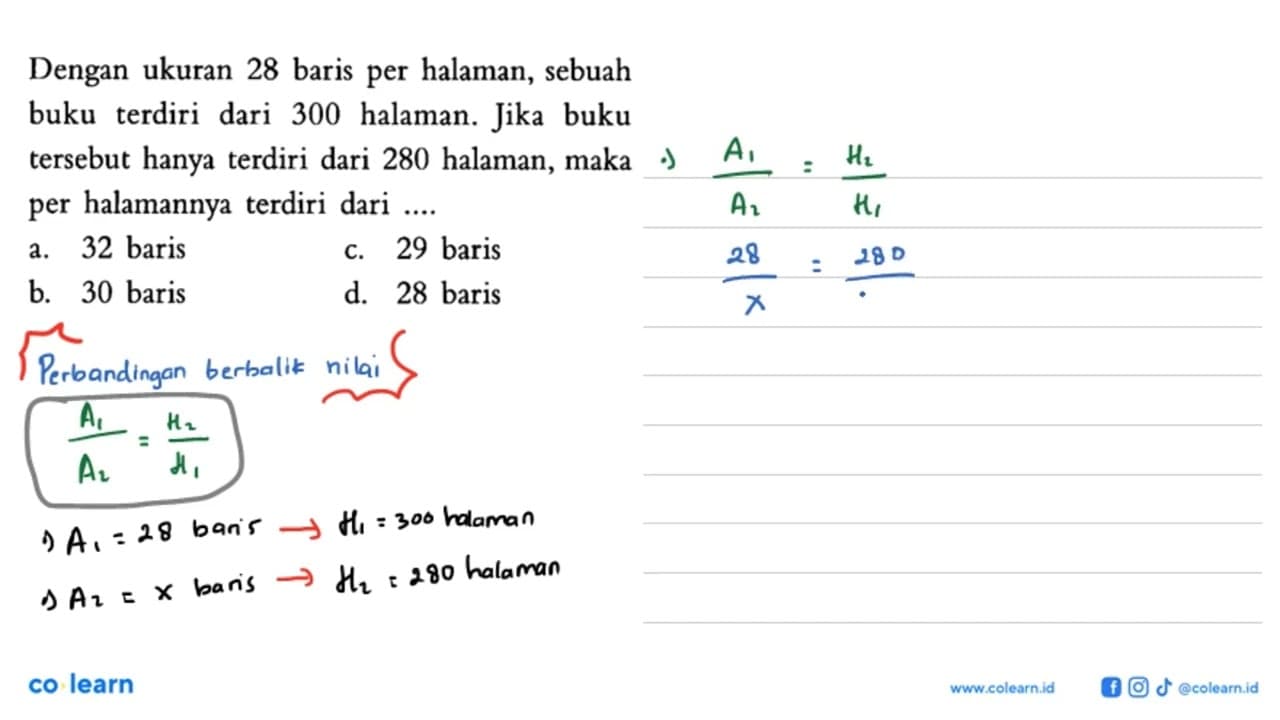 Dengan ukuran 28 baris per halaman, sebuah
buku terdiri dari 300 halaman. Jika buku
tersebut hanya terdiri dari 280 halaman, maka
per halamannya terdiri dari ....
a. 32 baris c. 29 baris
b. 30 baris d. 28 baris
Perbandingan berbalik nilai
A₁ = H₂
A₂ H₁
•) A₁ = 28 baris → H₁ = 300 halaman
•) A₂ = x baris → H₂ = 280 halaman
•) A₁ = H₂
A₂ H₁
28 = 280
x
co learn
www.colearn.id @colearn.id